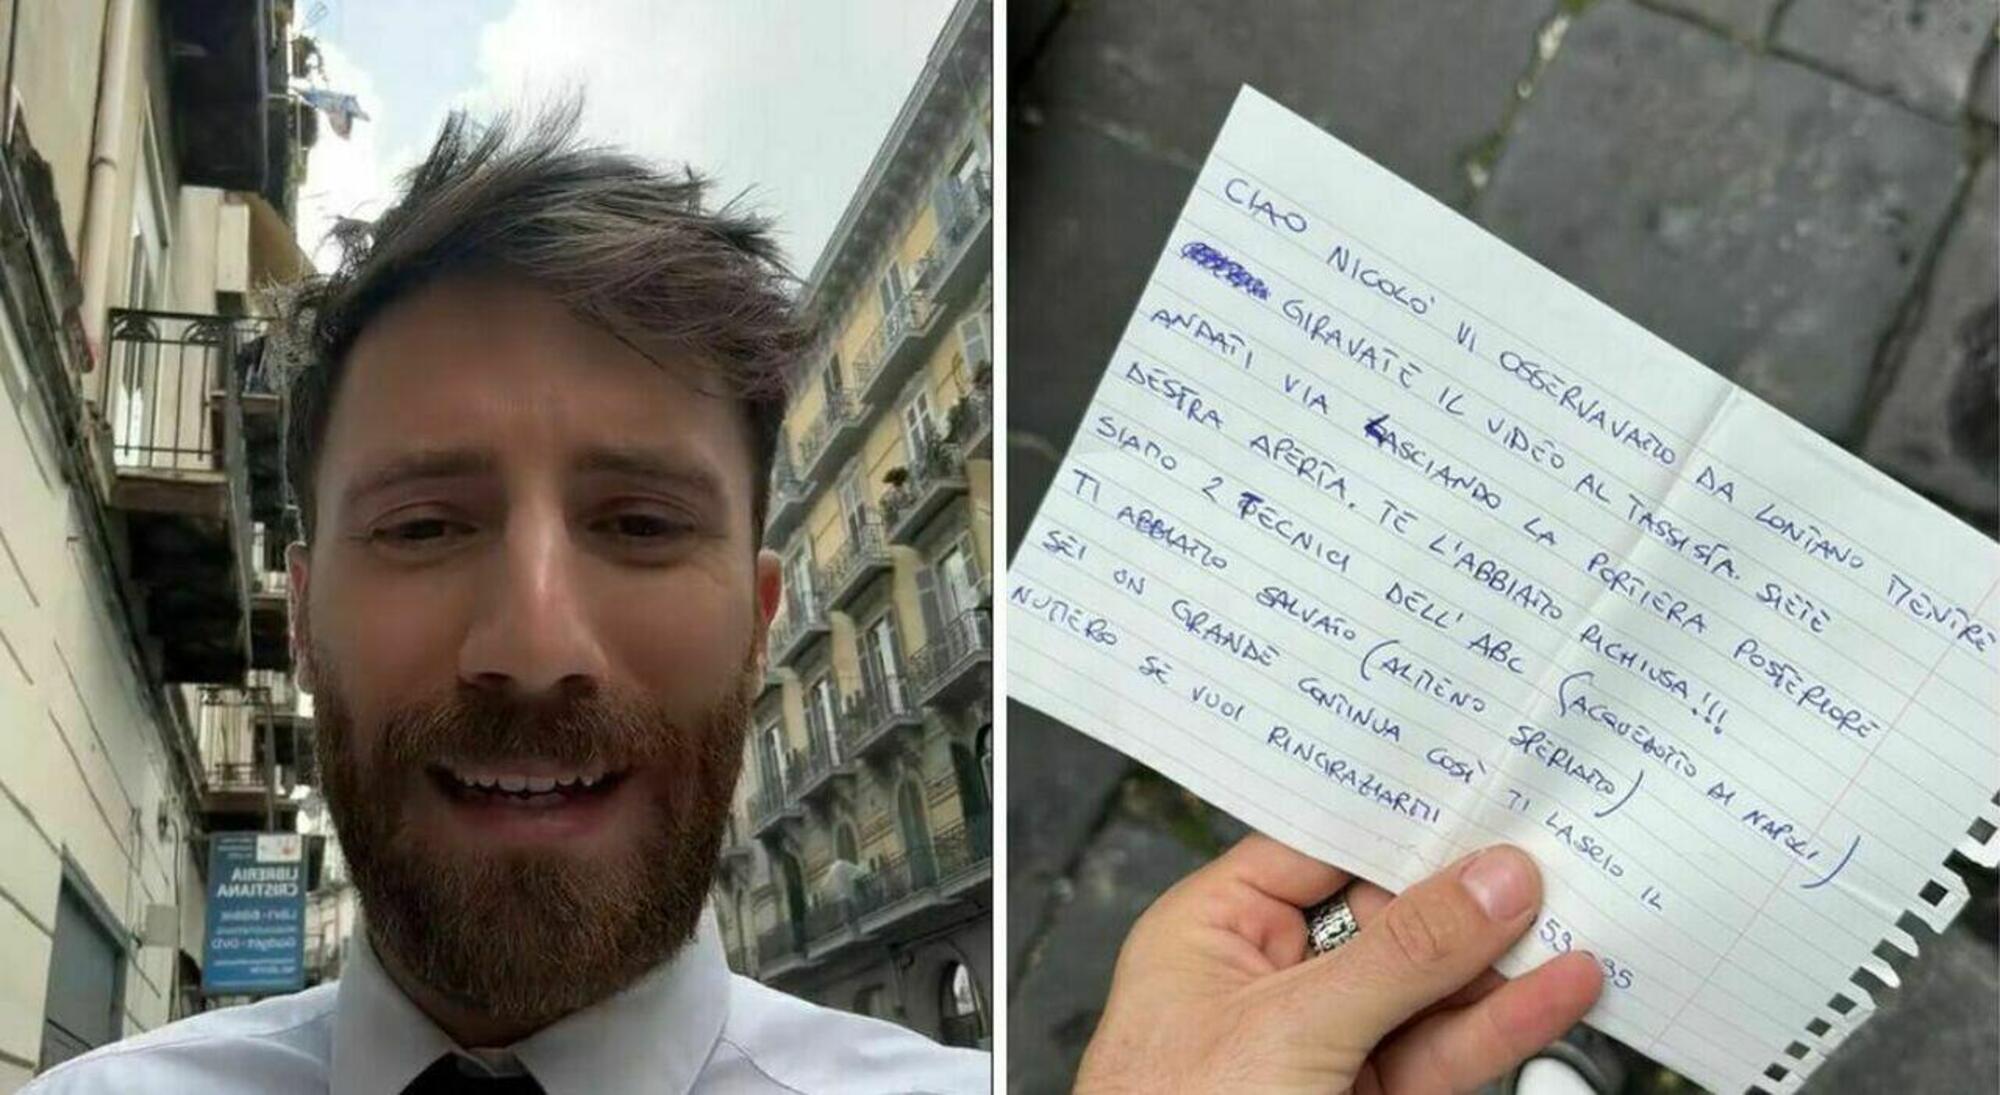 LIBRERIA
CRISTIANA
Gadget-DVD
CIAO NICOLO' VI OSSERVAVAMO DA LONTANO MENTRE
GIRAVATE IL VIDEO AL TASSISTA. SIETE
ANDATI VIA LASCIANDO LA PORTIERA POSTERIORE
DESTRA APERTA. TE L'ABBIAMO RICHIUSA!!!
SIAMO 2 TECNICI DELL'ABC (ACQUEDOTTO DI NAPOLI)
TI ABBIAMO SALVATO (ALMENO SPERIAMO)
SEI UN GRANDE CONTINUA COSI' TI LASCIO IL
NUMERO SE VUOI RINGRAZIARMI